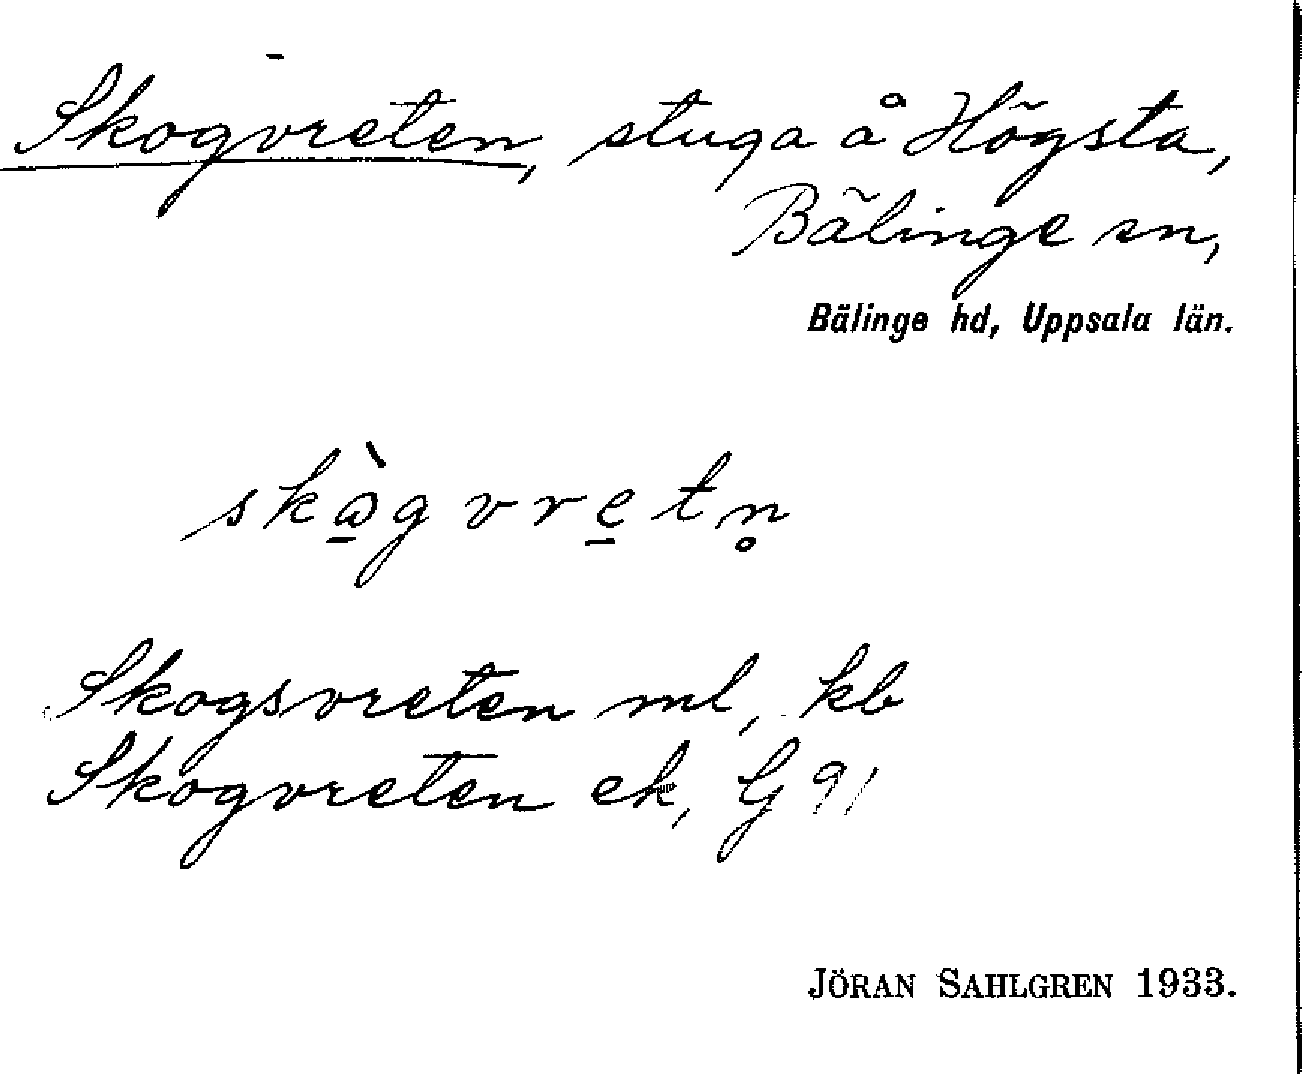 Skogvreten, stuga å Högsta,
Bälinge sn,
Bälinge hd, Uppsala län.
skὼ̱gvre̱tn̥
Skogsvreten ml, kb
Skogvreten ek, G 91
JÖRAN SAHLGREN 1933.